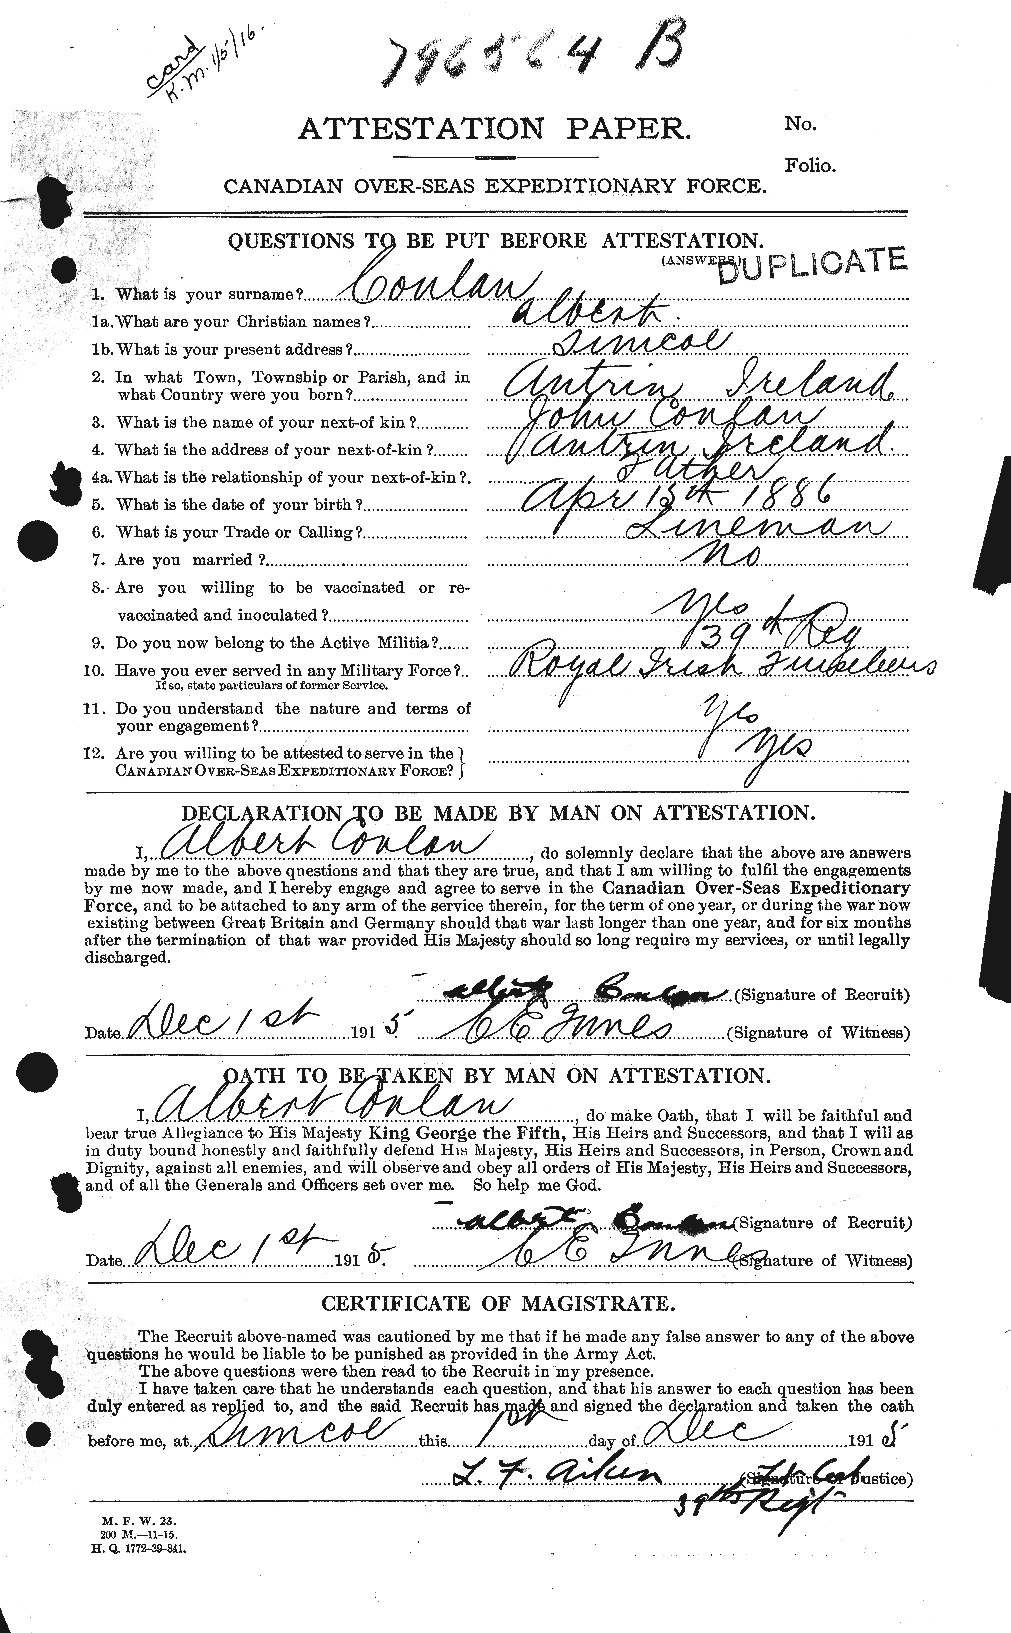 card
K.M. 1/5/16.
796564 B
ATTESTATION PAPER.
No.
Folio.
CANADIAN OVER-SEAS EXPEDITIONARY FORCE.
QUESTIONS TO BE PUT BEFORE ATTESTATION.
(ANSWERS)
DUPLICATE
1. What is your surname? Conlan
1a. What are your Christian names? Albert.
1b. What is your present address? Simcoe
2. In what Town, Township or Parish, and in
what Country were you born? Antrin Ireland
3. What is the name of your next-of kin? John Conlan
4. What is the address of your next-of-kin? Antrin Ireland.
4a. What is the relationship of your next-of-kin? Father
5. What is the date of your birth? Apr 13th 1886
6. What is your Trade or Calling? Lineman
7. Are you married? No
8. Are you willing to be vaccinated or re-
vaccinated and inoculated? Yes
9. Do you now belong to the Active Militia? 39th Reg
10. Have you ever served in any Military Force? Royal Irish
If so, state particulars of former Service.
11. Do you understand the nature and terms of
your engagement? Yes
12. Are you willing to be attested to serve in the
CANADIAN OVER-SEAS EXPEDITIONARY FORCE? Yes
DECLARATION TO BE MADE BY MAN ON ATTESTATION.
I, Albert Conlan, do solemnly declare that the above are answers
made by me to the above questions and that they are true, and that I am willing to fulfil the engagements
by me now made, and I hereby engage and agree to serve in the Canadian Over-Seas Expeditionary
Force, and to be attached to any arm of the service therein, for the term of one year, or during the war now
existing between Great Britain and Germany should that war last longer than one year, and for six months
after the termination of that war provided His Majesty should so long require my services, or until legally
discharged.
Albert Conlan (Signature of Recruit)
Date Dec 1st 1915 C E Innes (Signature of Witness)
OATH TO BE TAKEN BY MAN ON ATTESTATION.
I, Albert Conlan, do make Oath, that I will be faithful and
bear true Allegiance to His Majesty King George the Fifth, His Heirs and Successors, and that I will as
in duty bound honestly and faithfully defend His Majesty, His Heirs and Successors, in Person, Crown and
Dignity, against all enemies, and will observe and obey all orders of His Majesty, His Heirs and Successors,
and of all the Generals and Officers set over me. So help me God.
Albert Conlan (Signature of Recruit)
Date Dec 1st 1915. C E Innes (Signature of Witness)
CERTIFICATE OF MAGISTRATE.
The Recruit above-named was cautioned by me that if he made any false answer to any of the above
questions he would be liable to be punished as provided in the Army Act.
The above questions were then read to the Recruit in my presence.
I have taken care that he understands each question, and that his answer to each question has been
duly entered as replied to, and the said Recruit has made and signed the declaration and taken the oath
before me, at Simcoe this 1st day of Dec 1915
L. F. Aiken (Signature of Justice)
39th Regt
M. F. W. 23.
200 M.—11-15.
H. Q. 1772-39-841.